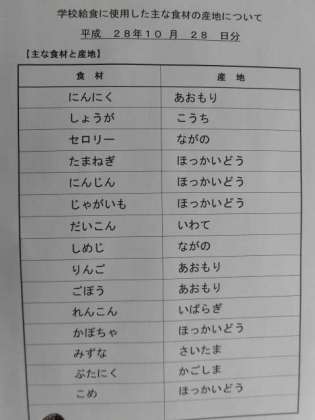 学校給食に使用した主な食材の産地について
平成 28年10月 28 日分
【主な食材と産地】
食 材 産 地
にんにく あおもり
しょうが こうち
セロリー ながの
たまねぎ ほっかいどう
にんじん ほっかいどう
じゃがいも ほっかいどう
だいこん いわて
しめじ ながの
りんご あおもり
ごぼう あおもり
れんこん いばらぎ
かぼちゃ ほっかいどう
みずな さいたま
ぶたにく かごしま
こめ ほっかいどう